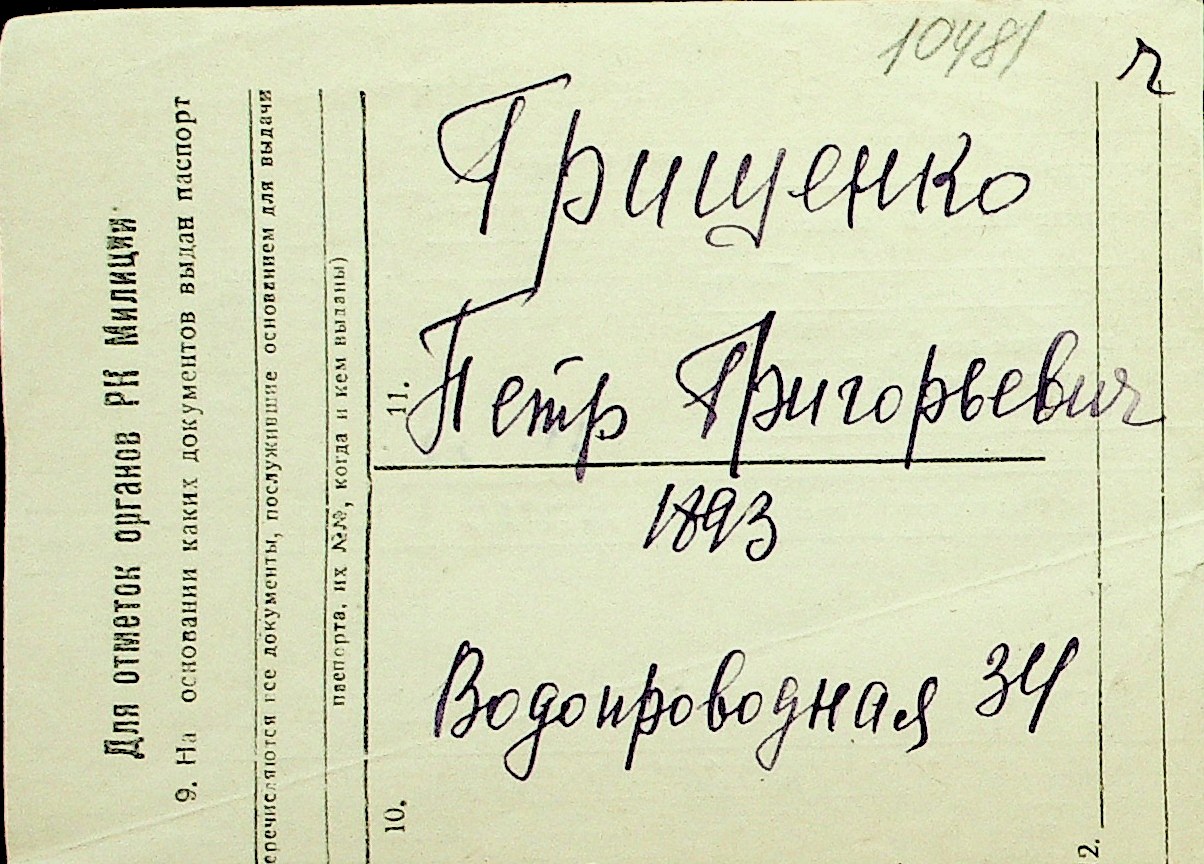 10481
г
Грищенко
Петр Григорьевич
1893
Водопроводная 34
Для отметок органов РК Милиции
9. На основании каких документов выдан паспорт
еречисляются все документы, послужившие основанием для выдачи
паспорта, их №№, когда и кем выданы)
11.
10.
2.